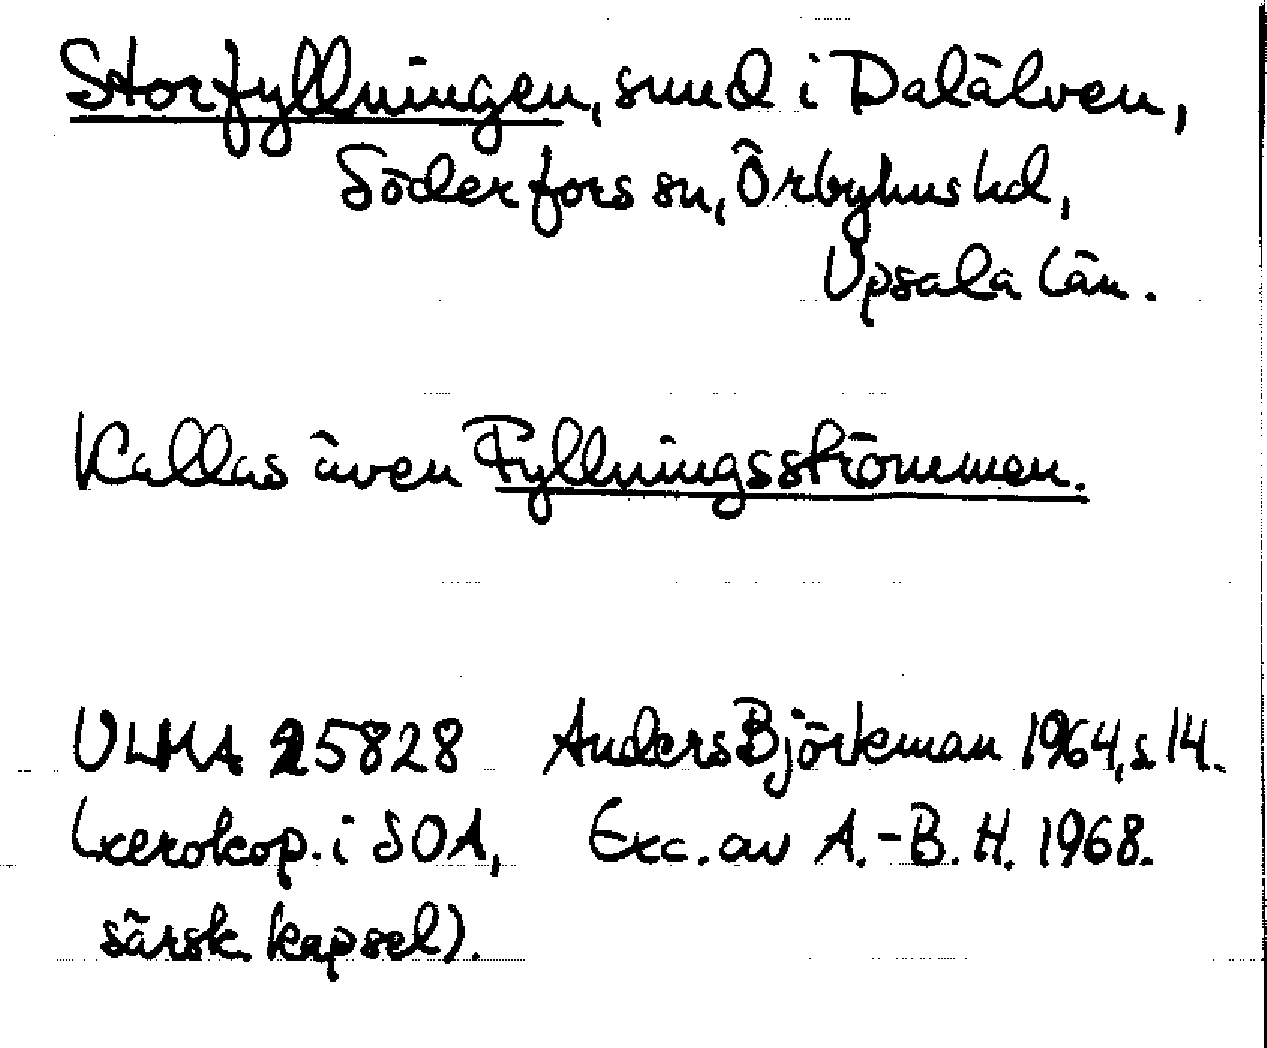 Storfyllningen, sund i Dalälven,
Söderfors sn, Örbyhus hd,
Upsala län.
Kallas även Fyllningsströmmen.
ULMA 25828 Anders Björkman 1964, s 14.
(xerokop. i SOA, Exc. av A.-B. H. 1968.
särsk. kapsel).